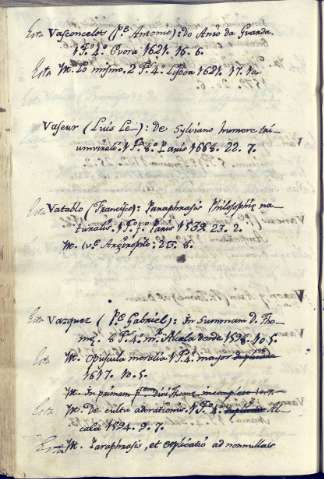 Esta Vasconcelos (Pe. Antonio): do Anjo da Guarda.
1 Tº. 4º. Evora 1621. 16. 6.
Esta Yt. Lo mismo, 2 Tº. 4º. Lisboa 1621. 17.
Vaseur (Luis Le): de Sylviano humore tri-
umvirali. 1 Tº. 8º. Paris 1668. 22. 7.
Esta Vatablo (Francisco): Paraphrasis Philosophie na-
turalis. 1 Tº. fº. Paris 1533. 23. 2.
Yt. (vº. Argiropilo: 25. 8.
Esta Vazquez (Pe. Gabriel): In Summam D. Tho-
mę. 8 Tº. 4º. mr. Alcala desde 1598. 10. 5.
Esta Yt. Opuscula moralia. 1 Tº. 4º. mayor
1617. 10. 5.
Yt. In primam D. Thomę
Esta Yt. De cultu adorationis. 1 Tº. 4º. Al-
calá 1594. 9. 7.
Esta Yt. Paraphrasis, et explicatio ad nonnullas